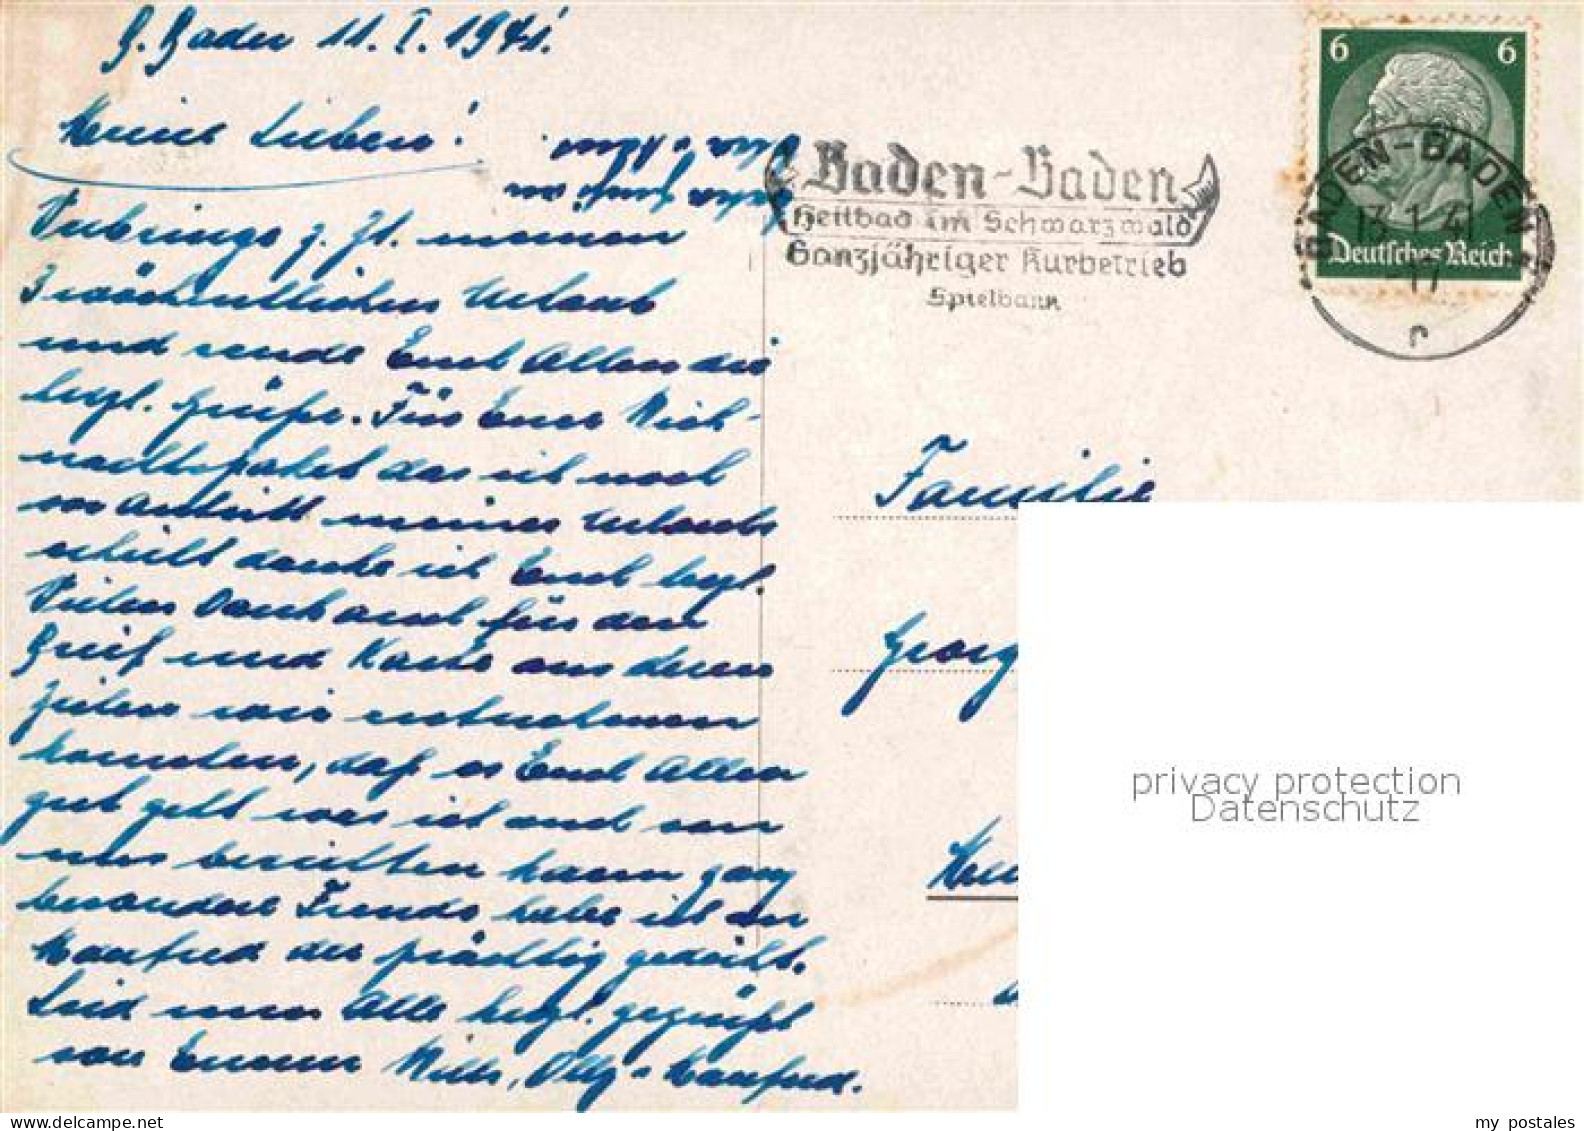 B. Baden 11. I. 1941.
Meine Lieben!
Verbringe z. Zt. meinen
3 wöchentlichen Urlaub
und sende Euch Allen die
hrzl. Grüße. Für Euer Weih-
nachtspaket das ich noch
vor Antritt meines Urlaubs
erhielt danke ich Euch hrzl.
Vielen Dank auch für den
Brief und Karte aus deren
Zeilen wir entnehmen
konnten, daß es Euch Allen
gut geht was ich auch von
uns berichten kann ganz
besondere Freude habe ich an
Manfred der prächtig gedeiht.
Seid nun Alle hrzl. gegrüßt
von Eueren Willi, Olly u Manfred.
Baden-Baden
Heilbad im Schwarzwald
Ganzjähriger Kurbetrieb
Spielbank
6 6
Deutsches Reich
BADEN-BADEN
13.1.41
17
r
Familie
Georg
privacy protection
Datenschutz
my postales